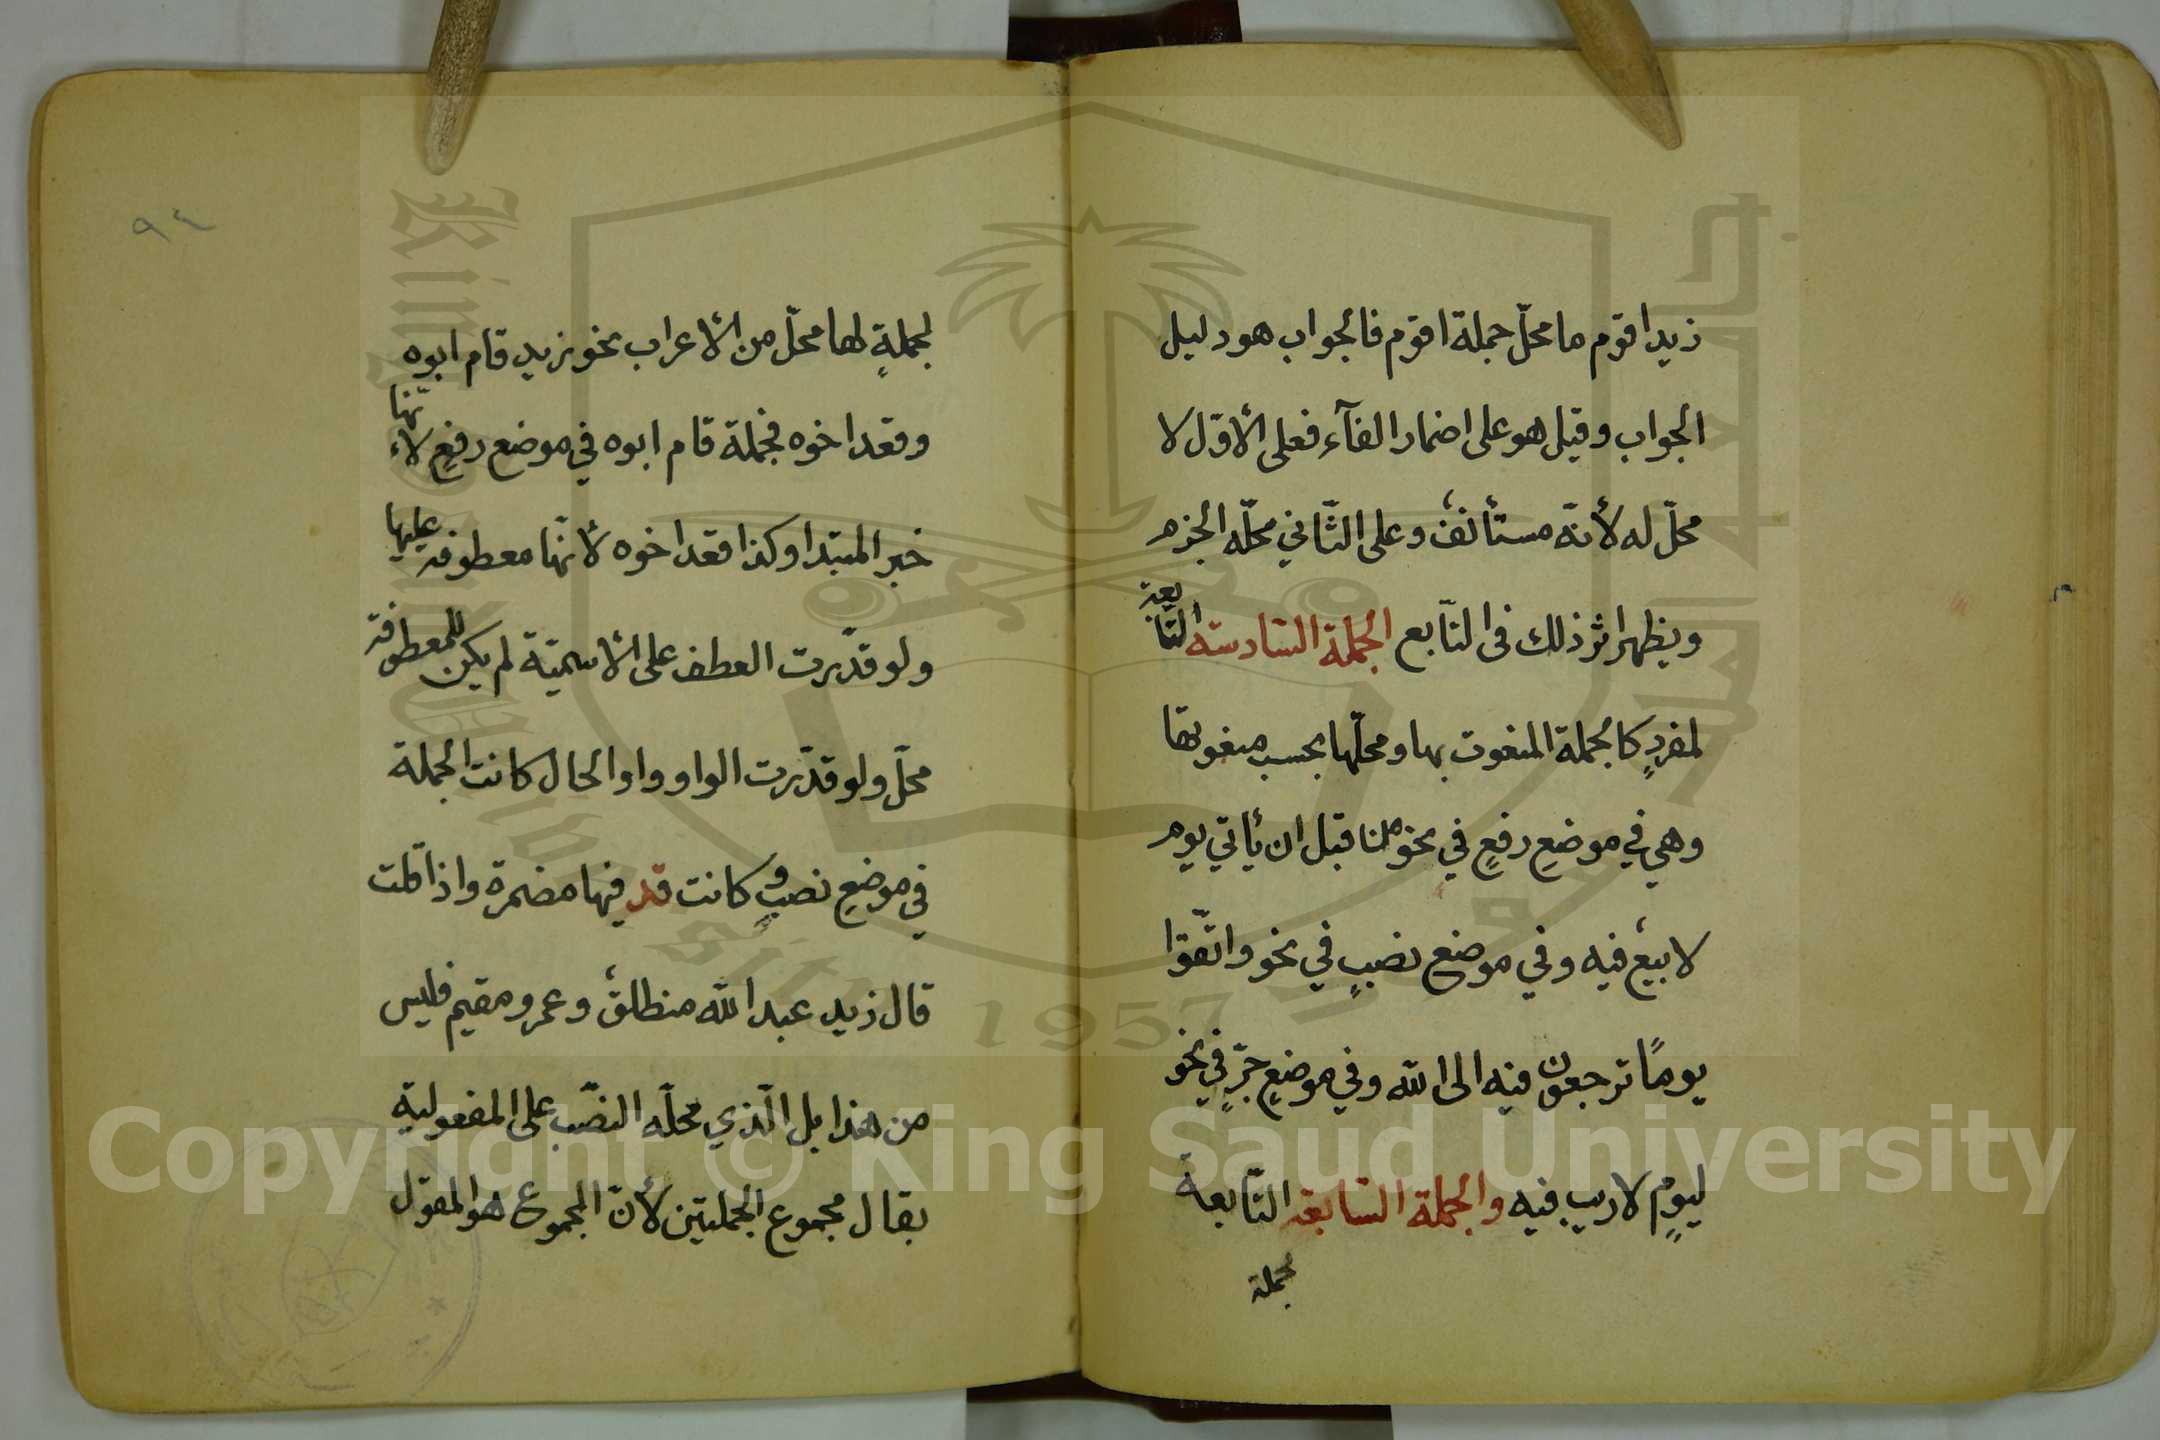 زيد اقوم ما محلّ جملة اقوم فالجواب هو دليل
الجواب وقيل هو على اضمار الفآء فعلى الأوّل لا
محلّ له لأنّه مستأنفٌ وعلى الثّاني محلّه الجزم
ويظهر اثر ذلك فى التّابع الجملة السّادسة التّابعة
لمفردٍ كالجملة المنعوت بها ومحلّها بحسب منعوتها
وهي في موضعِ رفعٍ في نحو من قبل ان يأتي يوم
لا بيعٌ فيه وفي موضع نصبٍ في نحو واتّقوا
يومًا ترجعون فيه الى الله وفي موضعِ جرٍّ في نحو
ليومٍ لا ريب فيه والجملة السّابعة التّابعة
لجملة
٩٤
لجملةٍ لها محلّ من الأعراب نحو زيد قام ابوه
وقعد اخوه فجملة قام ابوه في موضع رفعٍ لأنّها
خبر المبتدا وكذا قعد اخوه لأنّها معطوفة عليها
ولو قدّرت العطف على الأسميّة لم يكن للمعطوفة
محلّ ولو قدّرت الواو واو الحال كانت الجملة
في موضعِ نصبٍ وكانت قد فيها مضمرة واذا قلت
قال زيد عبد الله منطلقٌ وعمرو مقيم فليس
من هذا بل الّذي محلّه النصّب على المفعولية
بقال مجموع الجملتين لأنّ المجموع هو المقول
Copyright © King Saud University
1957